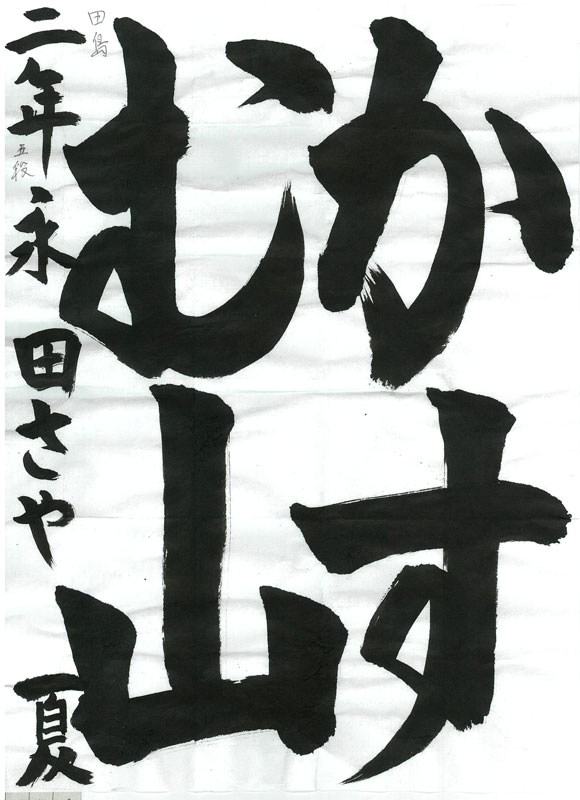 かす
む山
二年永田さや夏
田島
五段